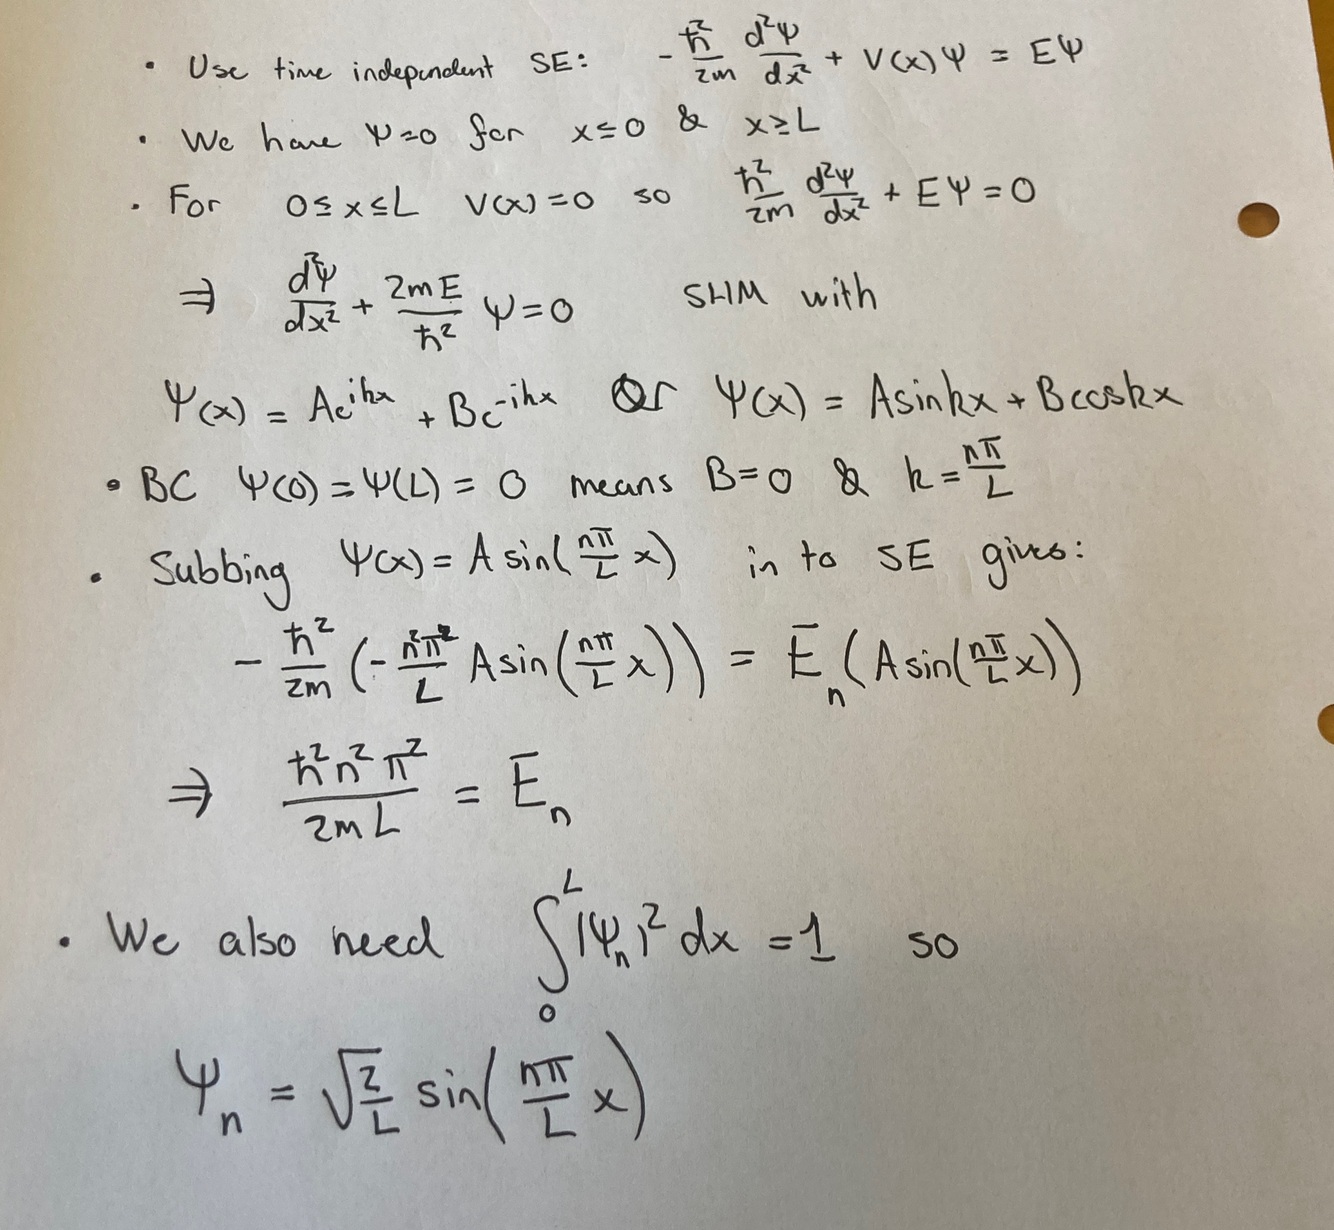 • Use time independent SE: -ħ²/2m d²Ψ/dx² + V(x)Ψ = EΨ
• We have Ψ=0 for x≤0 & x≥L
• For 0≤x≤L V(x)=0 so ħ²/2m d²Ψ/dx² + EΨ=0
⇒ d²Ψ/dx² + 2mE/ħ² Ψ=0 SHM with
Ψ(x) = Ae^ikx + Be^-ikx Or Ψ(x) = Asinkx + Bcoskx
• BC Ψ(0)=Ψ(L)=0 means B=0 & k=nπ/L
• Subbing Ψ(x)=A sin(nπ/L x) in to SE gives:
-ħ²/2m (-n²π²/L Asin(nπ/L x)) = E_n (Asin(nπ/L x))
⇒ ħ²n²π²/2mL = E_n
• We also need ∫₀^L |Ψ_n|² dx = 1 so
Ψ_n = √2/L sin(nπ/L x)